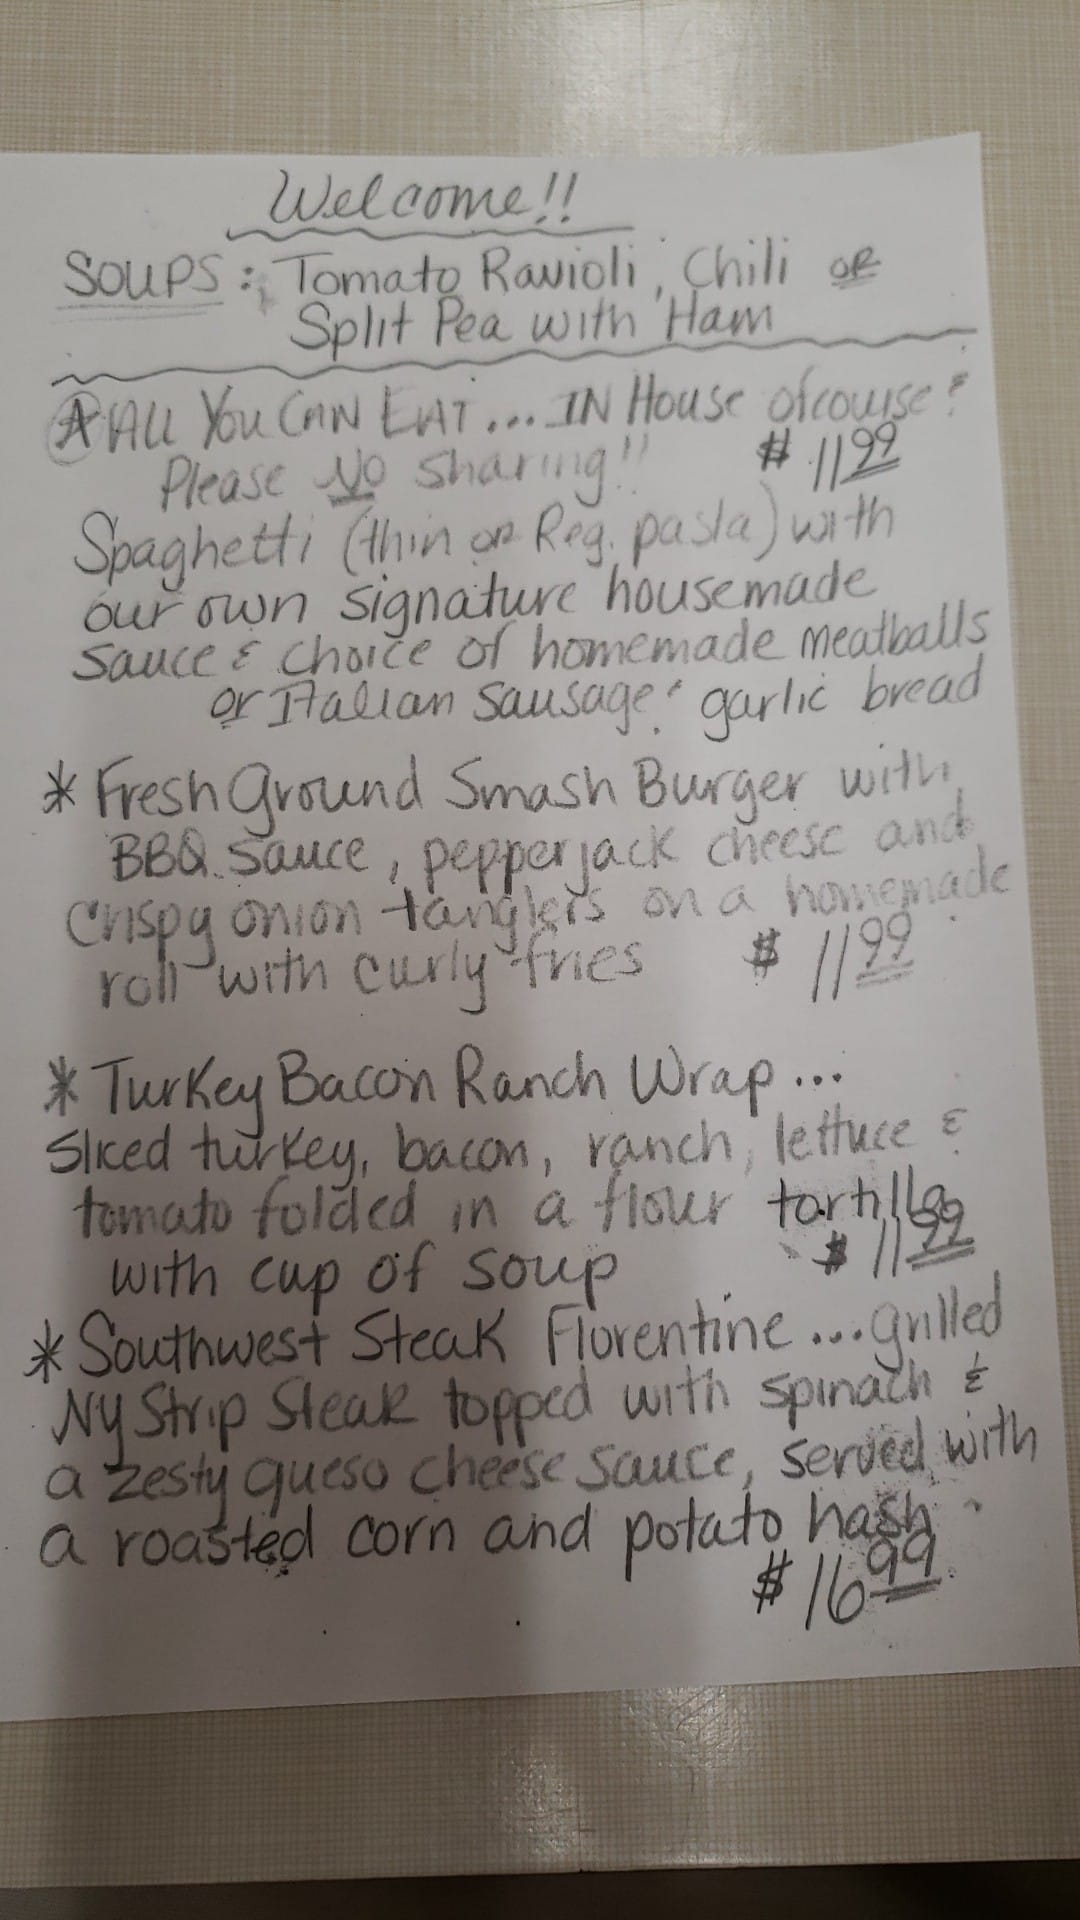 Welcome!!
SOUPS: Tomato Ravioli, Chili OR
Split Pea with Ham
* All You Can Eat... IN House ofcourse &
Please NO Sharing!! $11.99
Spaghetti (thin or Reg. pasta) with
our own signature housemade
Sauce & choice of homemade meatballs
or Italian Sausage & garlic bread
* Fresh Ground Smash Burger with
BBQ Sauce, pepperjack cheese and
Crispy onion tanglers on a homemade
roll with curly fries $11.99
* Turkey Bacon Ranch Wrap...
Sliced turkey, bacon, ranch, lettuce &
tomato folded in a flour tortilla
with cup of soup $11.99
* Southwest Steak Florentine...grilled
NY Strip Steak topped with spinach &
a zesty queso cheese sauce, served with
a roasted corn and potato hash
$16.99